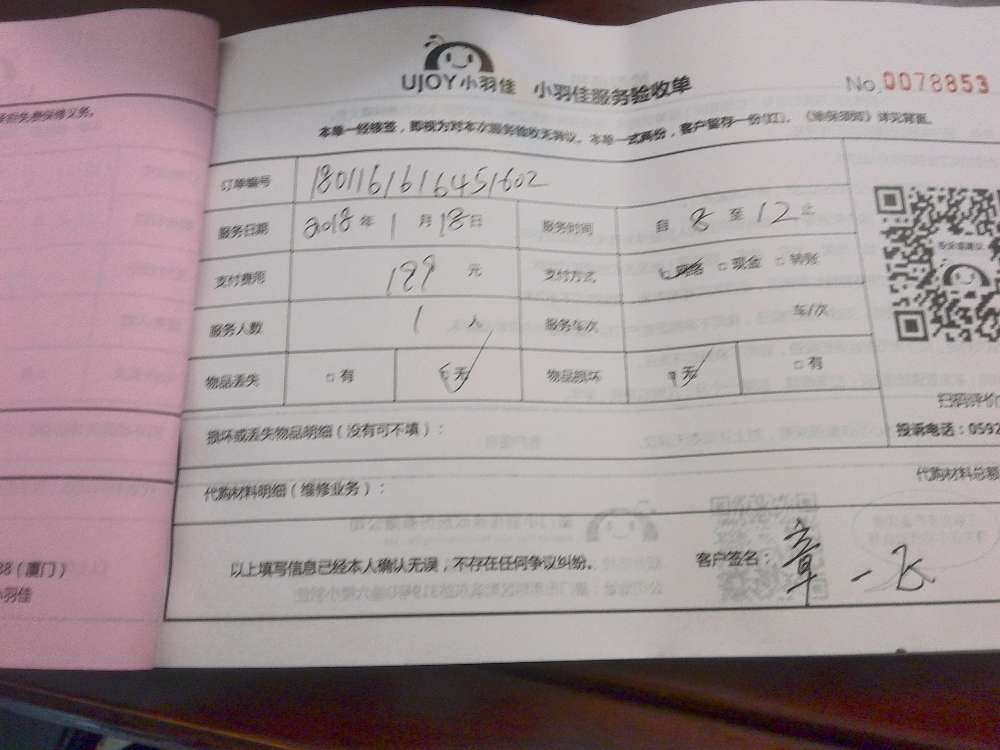 UJOY小羽佳 小羽佳服务验收单 No.0078853
本单一经修签，即视为对本次服务验收无异议。本单一式两份，客户留存一份(红)。《维保须知》详见背面。
免费保修义务。
订单编号 1801161616451602
服务日期 2018年1月18日 服务时间 自8至12止
支付费用 199元 支付方式 □网络 □现金 □转账
服务人数 1人 服务车次 车/次
物品丢失 □有 □无 物品损坏 □无 □有
扫码评价
损坏或丢失物品明细（没有可不填）： 投诉电话：0592
代购材料明细（维修业务）： 代购材料总额
以上填写信息已经本人确认无误，不存在任何争议纠纷。 客户签名：章一飞
88（厦门）
小羽佳